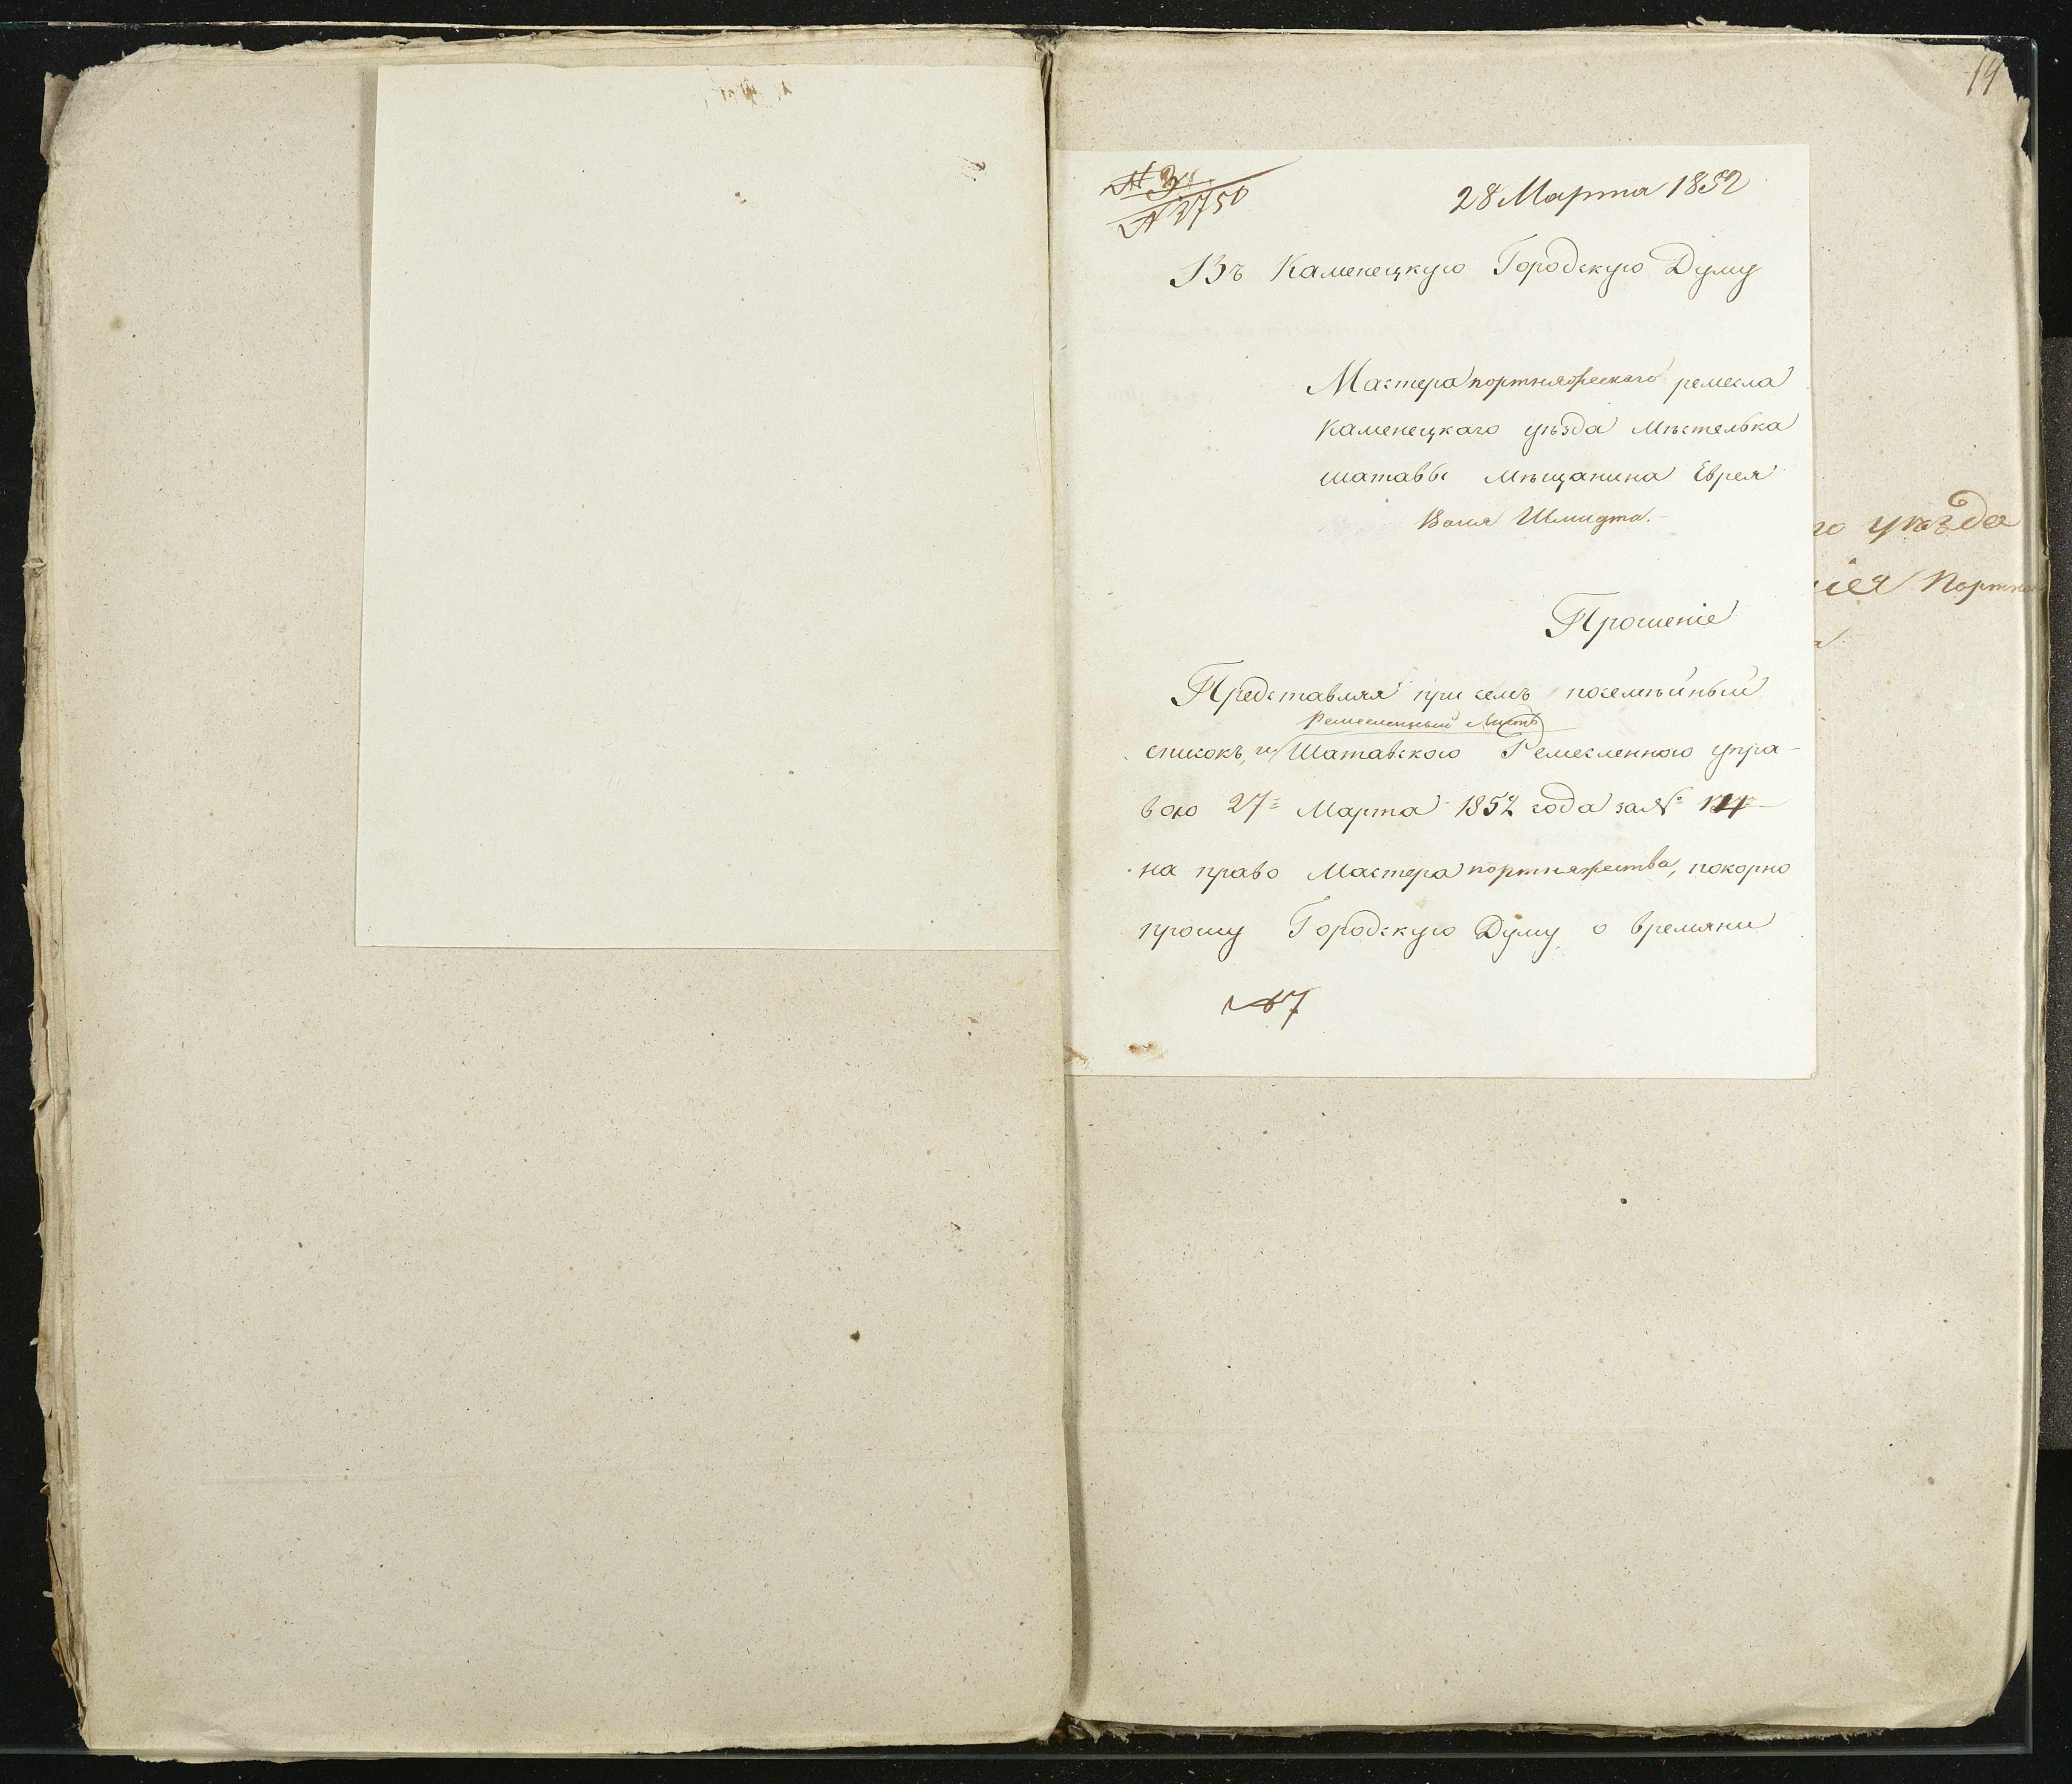 14
28 Марта 1852
№ 2750
Въ Каменецкую Городскую Думу
Мастера портняжескаго ремесла
Каменецкаго уѣзда Мѣстечька
шатавы Мѣщанина Еврея
Шмидта.
Прошеніе
Представляя при семъ посемѣйный
Ремесленный Листъ
списокъ, и Шатавского Ремесленного упра-
вою 27 Марта 1852 года за №
на право Мастера портняжества, покорно
прошу Городскую Думу о времяни
№ 7
го уѣзда
Портно